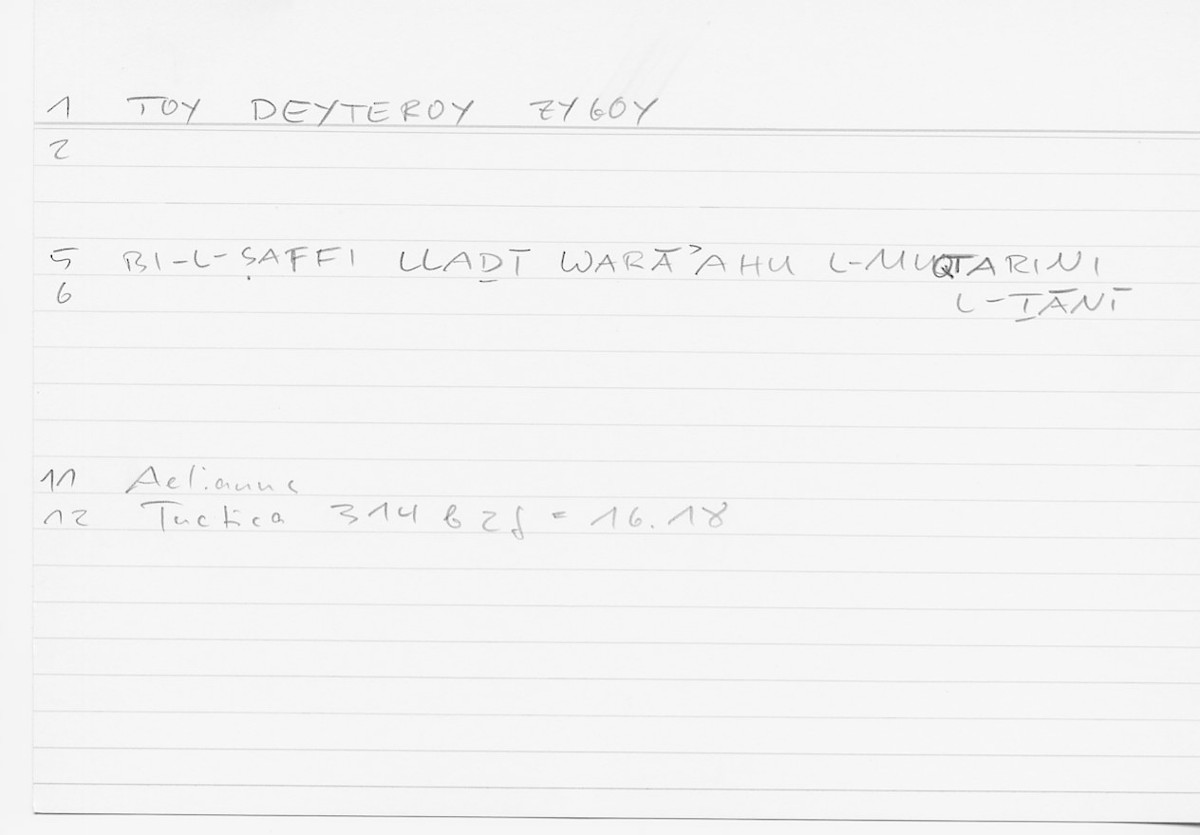 1 TOY DEYTEROY ZYGOY
2
5 BI-L-ṢAFFI LLAḎĪ WARĀʾAHU L-MUQTARINI
6 L-ṮĀNĪ
11 Aelianus
12 Tactica 314 b 2f = 16.18